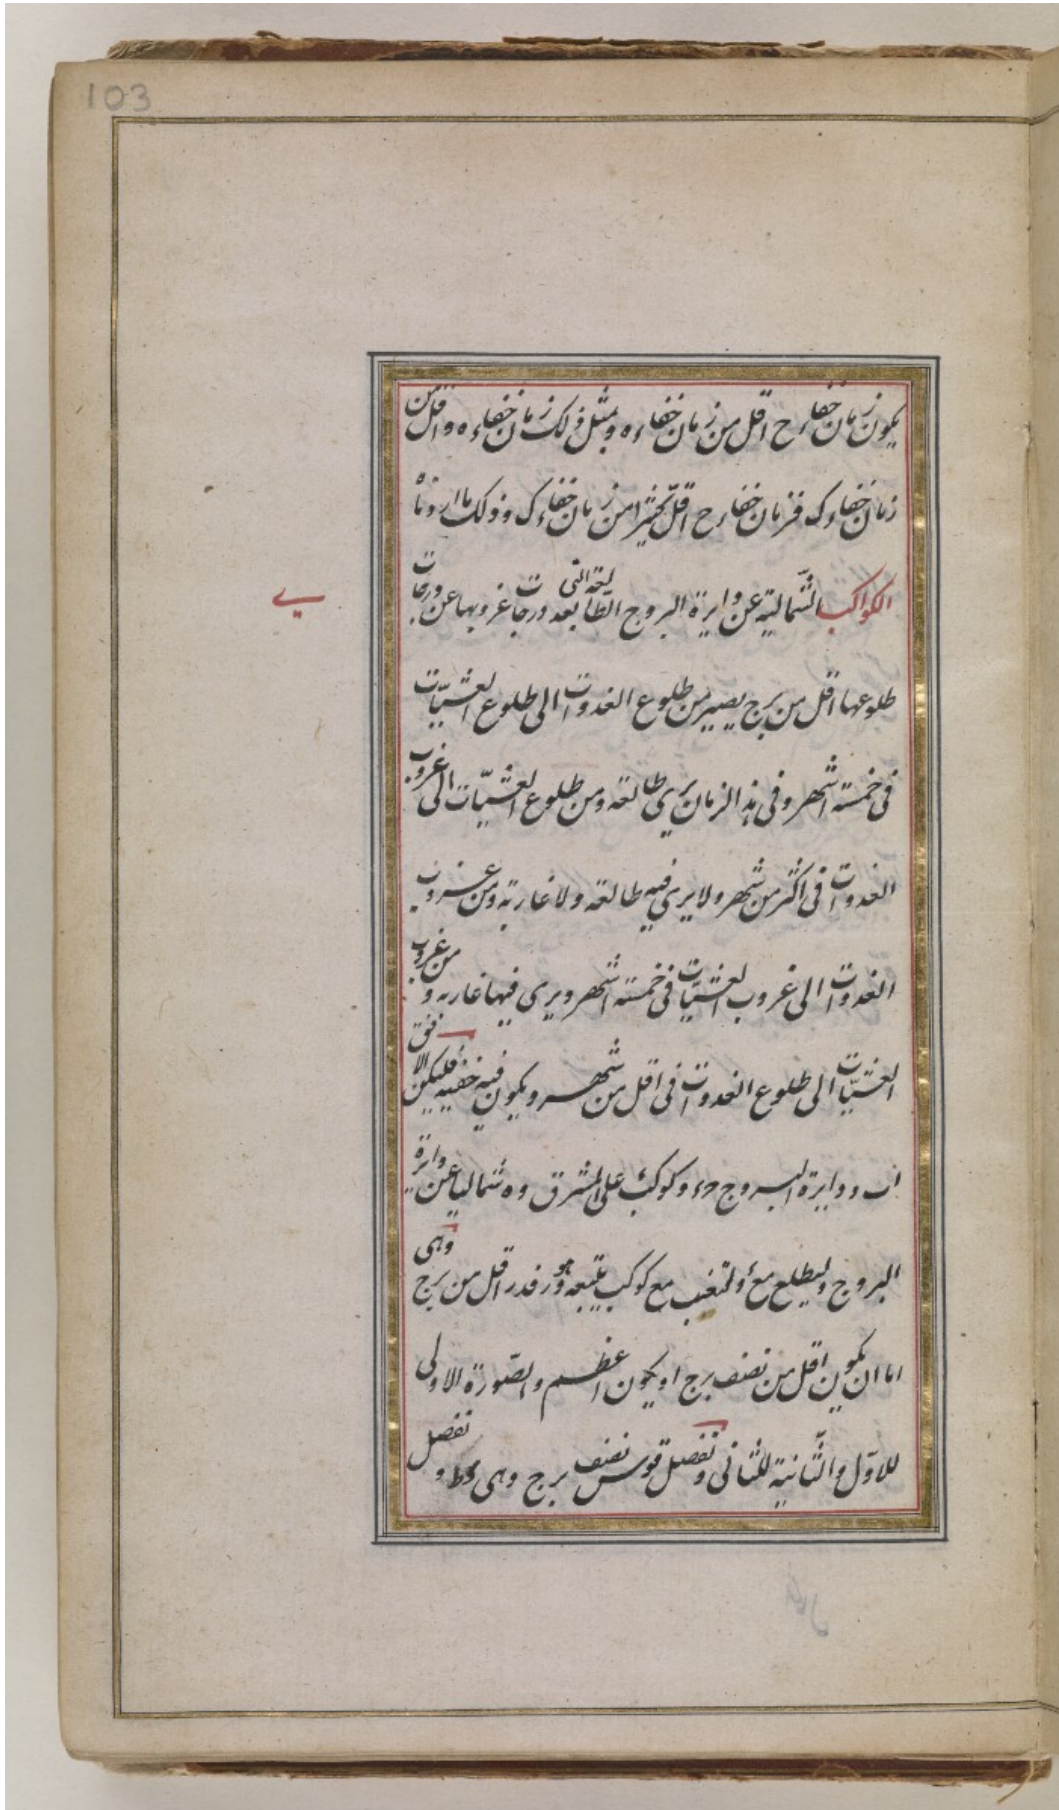 103
يكون زمان خفاء ح اقل من زمان خفاء ه و بمثل ذلك زمان خفاء ه اقل من
زمان خفاء ك فزمان خفاء ح اقل كثيرا من زمان خفاء ك و ذلك ما اردناه
ي
الكواكب الشّمالية عن دايرة البروج الطالعة التى بعد درجات غروبها عن درجات
طلوعها اقل من برج يصير من طلوع الغدوات الى طلوع العشيّات
فى خمسة اشهر و فى هذا الزمان يرى طالعة و من طلوع العشيّات الى غروب
الغدوات فى اكثر من شهر و لا يرى فيه طالعة و لا غاربة و من غروب
الغدوات الى غروب العشيّات فى خمسة اشهر و يرى فيها غاربة و من غروب
العشيّات الى طلوع الغدوات فى اقل من شهر و يكون فيه خفية فليكن الافق
اب و دايرة البروج حء و كوكب على المشرق و ه شماليا عن دايرة
البروج و ليطلع مع ء و لتغيب مع كوكب يتبعه و هو ر فدر اقل من برج وهى
اما ان يكون اقل من نصف برج او يكون اعظم و الصّورة الاولى
للاوّل و الثّانية للثانى و نفصل قوس نصف برج وهى كط و نفصل